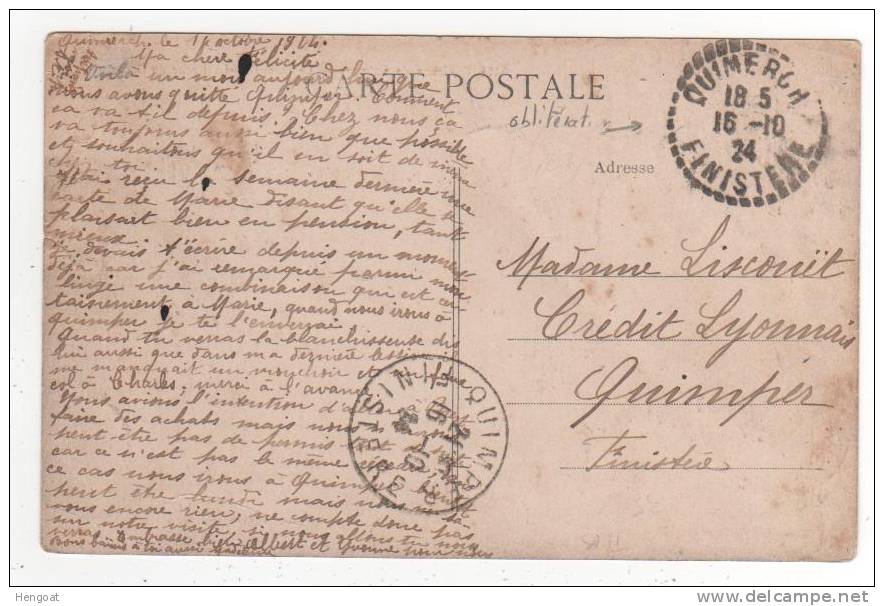 Quimerch, le 16 octobre 1924.
Ma chère Félicité
Voilà un mois aujourd'hui que
nous avons quitté Quimper. Comment
ça va-t-il depuis? Chez nous ça
va toujours aussi bien que possible
et souhaitons qu'il en soit de même
chez toi.
J'ai reçu la semaine dernière une
carte de Marie disant qu'elle se
plaisait bien en pension, tant
mieux.
Je devais t'écrire depuis un moment
déjà car j'ai remarqué parmi mon
linge une combinaison qui est cer-
tainement à Marie, quand nous irons à
Quimper je te l'enverrai
Quand tu verras la blanchisseuse dis
lui aussi que dans ma dernière
me manquait un mouchoir et un faux
col à Charles, merci à l'avance
Nous avions l'intention d'aller
faire des achats mais nous
peut-être pas de permis
car ce n'est pas le même
ce cas nous irons à Quimper
peut être lundi mais nous ne sa-
vons encore rien, ne compte donc pas
sur notre visite, si nous allons tu nous
verras. Embrasse bien Albert et Yvonne pour nous
bons baisers à toi aussi
CARTE POSTALE
oblitération
Adresse
QUIMERCH
18 5
16 -10
24
FINISTERE
Madame Liscouët
Crédit Lyonnais
Quimper
Finistère
QUIMPER
FINISTERE
Hengoat
delcampe.net